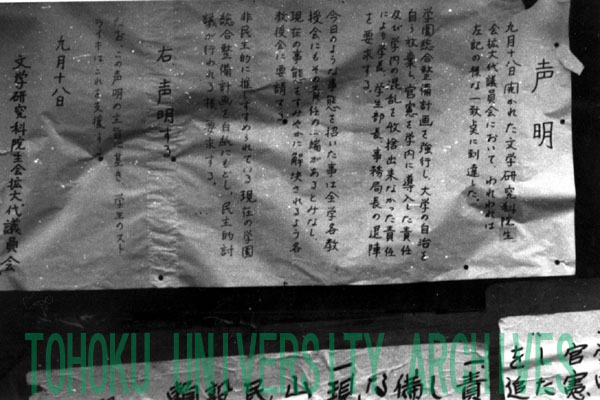 声明
九月十八日開かれた文学研究科院生
会拡大代議員会において、われわれは
左記の様な一致案に到達した。
学園総合整備計画を強行し、大学の自治を
自ら放棄し、官憲を学内に導入した責任
及び学内の混乱を收拾出来なかった責任
により学長、学生部長、事務局長の退陣
を要求する。
今日のような事態を招いた事は全学各教
授会にもその責任の一端があるとみなし
現在の事態をすみやかに解決されるよう各
教授会に要請する。
非民主的に推しすすめられている現在の学園
総合整備計画を白紙にもどし、民主的討
議が行われる様、要求する。
右 声明する。
なお、この声明の主旨に基き、学生のスト
ライキはこれを支援する。
九月十八日
文学研究科院生会拡大代議員会
官憲
した
を追
責
し
備
な
現
山
民
TOHOKU UNIVERSITY ARCHIVES